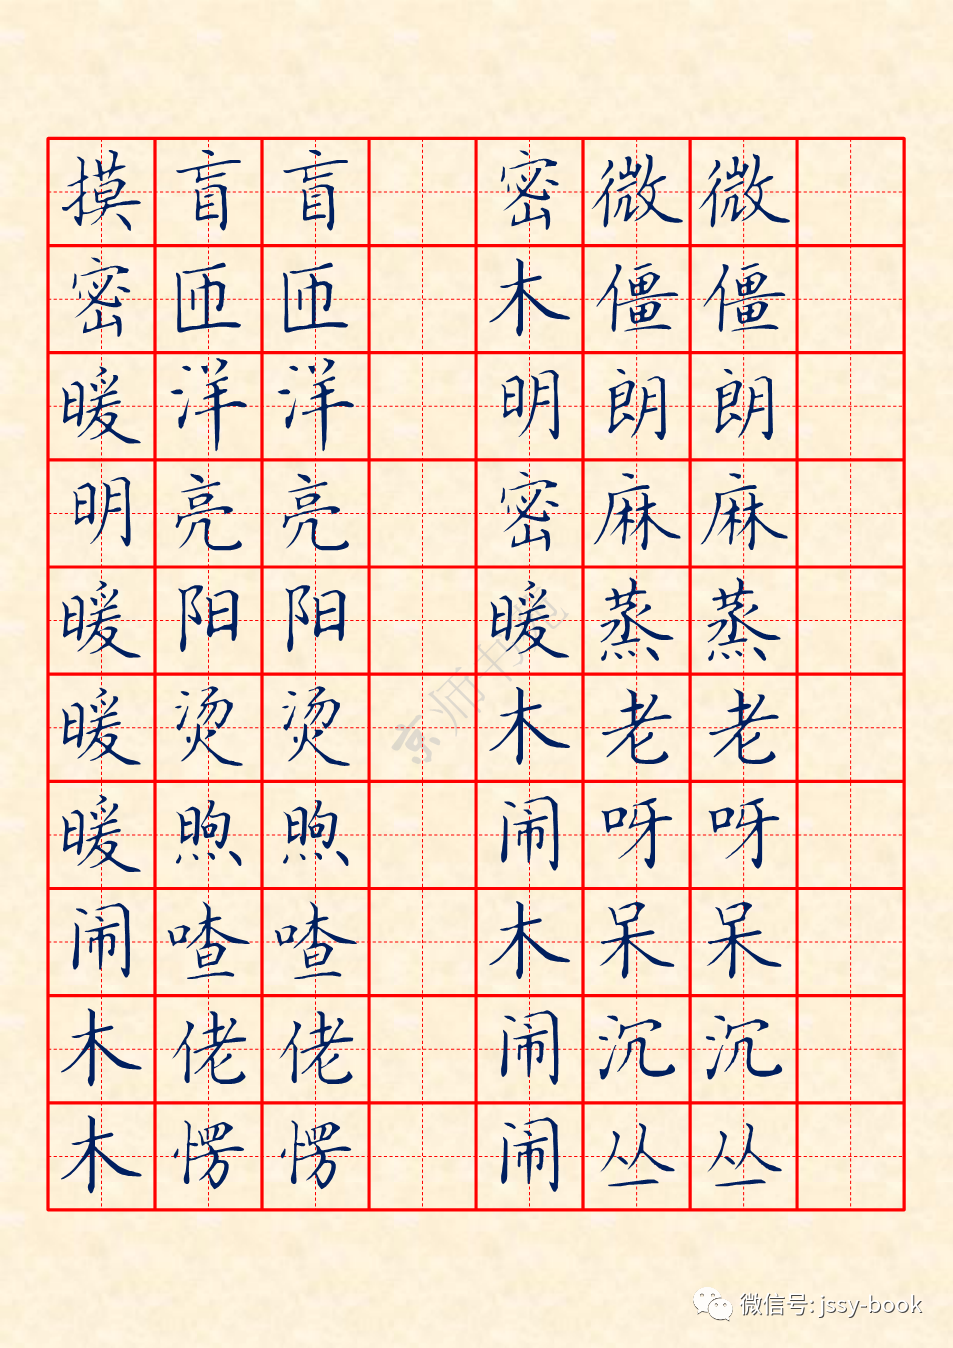 摸盲盲 密微微
密匝匝 木僵僵
暖洋洋 明朗朗
明亮亮 密麻麻
暖阳阳 暖蒸蒸
暖烫烫 木老老
暖煦煦 闹呀呀
闹喳喳 木呆呆
木佬佬 闹沉沉
木愣愣 闹丛丛
京师书苑
微信号: jssy-book